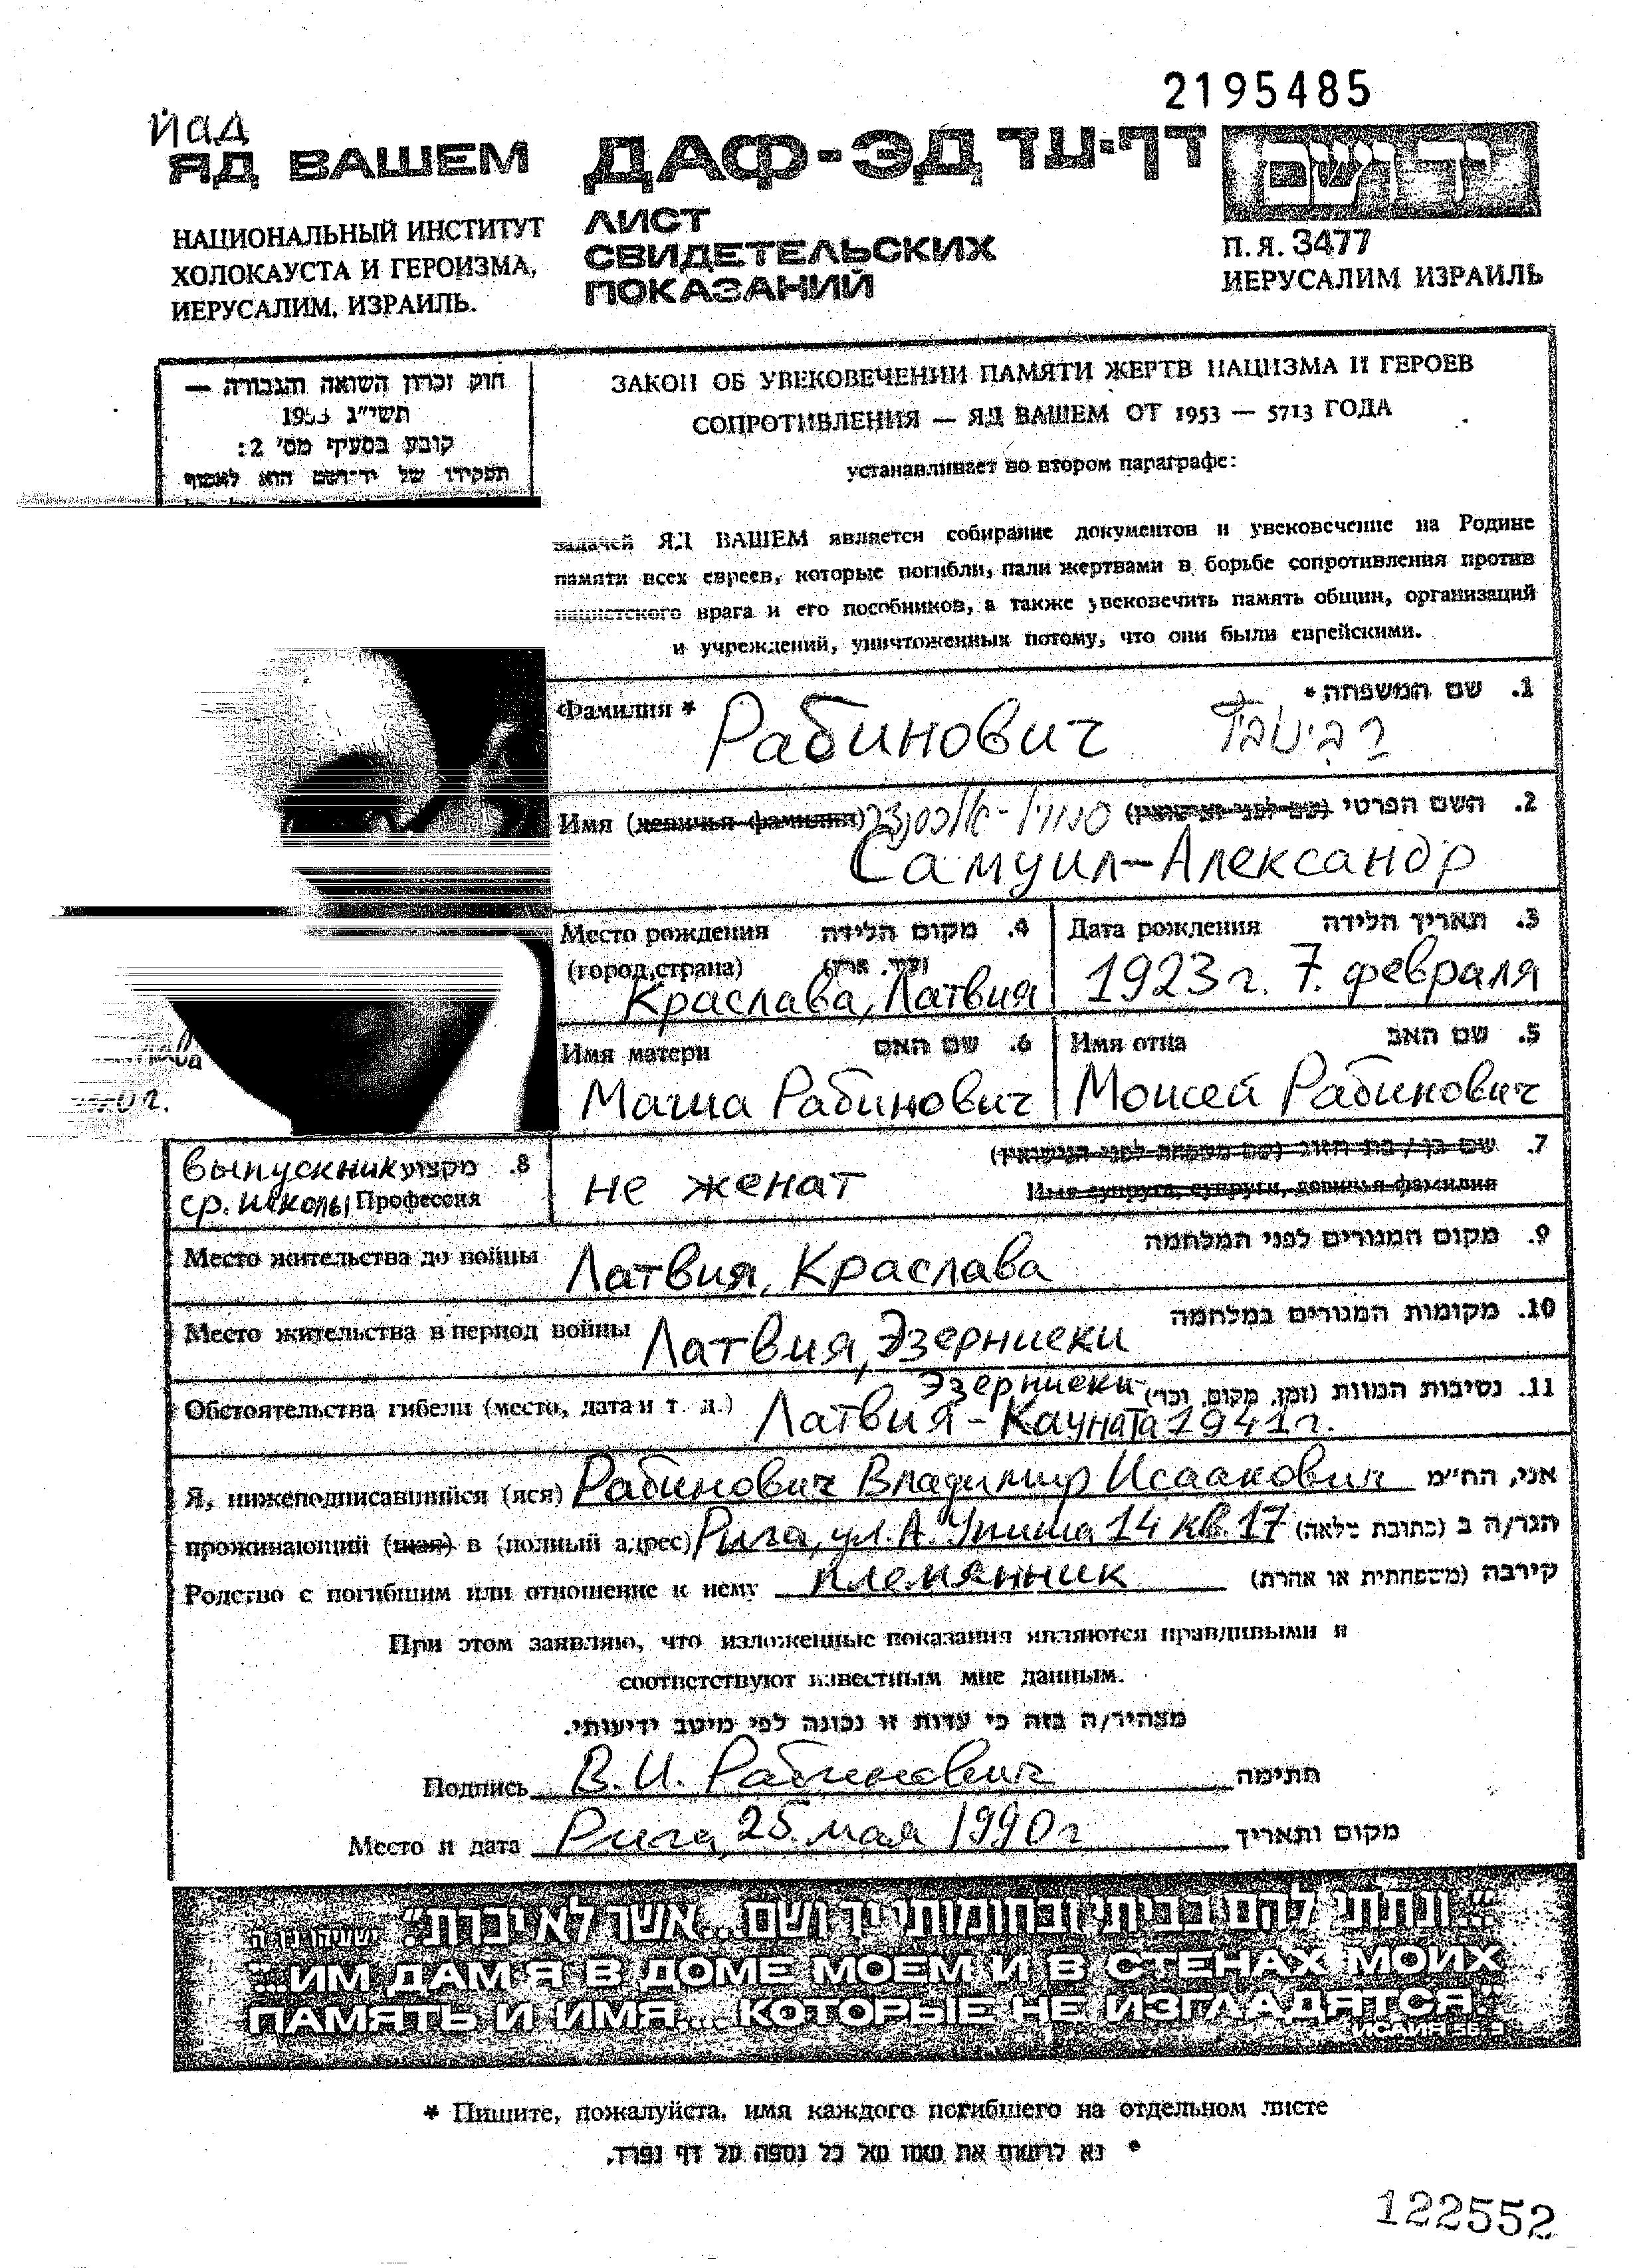 2195485
Йад
ЯД ВАШЕМ
ДАФ-ЭД דף-עד
יד ושם
НАЦИОНАЛЬНЫЙ ИНСТИТУТ
ХОЛОКАУСТА И ГЕРОИЗМА,
ИЕРУСАЛИМ, ИЗРАИЛЬ.
ЛИСТ
СВИДЕТЕЛЬСКИХ
ПОКАЗАНИЙ
П. Я. 3477
ИЕРУСАЛИМ ИЗРАИЛЬ
חוק זכרון השואה והגבורה —
תשי"ג 1953
קובע בסעיף מס' 2:
תפקידו של יד-ושם הוא לאסוף
ЗАКОН ОБ УВЕКОВЕЧЕНИИ ПАМЯТИ ЖЕРТВ НАЦИЗМА И ГЕРОЕВ
СОПРОТИВЛЕНИЯ — ЯД ВАШЕМ ОТ 1953 — 5713 ГОДА
устанавливает во втором параграфе:
задачей ЯД ВАШЕМ является собирание документов и увековечение на Родине
памяти всех евреев, которые погибли, пали жертвами в борьбе сопротивления против
нацистского врага и его пособников, а также увековечить память общин, организаций
и учреждений, уничтоженных потому, что они были еврейскими.
Фамилия * 1. שם המשפחה *
Рабинович
Имя (девичья фамилия) 2. השם הפרטי (שם לפני הנישואין)
Самуил-Александр
Место рождения 4. מקום הלידה
(город, страна) (עיר, ארץ)
Краслава, Латвия
Дата рождения 3. תאריך הלידה
1923 г. 7. февраля
Имя матери 6. שם האם
Маша Рабинович
Имя отца 5. שם האב
Моисей Рабинович
выпускник 8. מקצוע
ср. школы Профессия
не женат
7. שם בן / בת הזוג (שם משפחה לפני הנישואין)
Имя супруга, супруги, девичья фамилия
Место жительства до войны Латвия, Краслава 9. מקום המגורים לפני המלחמה
Место жительства в период войны Латвия, Эзерниеки 10. מקומות המגורים במלחמה
Эзерниеки-
Обстоятельства гибели (место, дата и т. д.) Латвия - Кауната 1941 г. 11. נסיבות המוות (זמן, מקום, וכו')
Я, нижеподписавшийся (яся) Рабинович Владимир Исаакович אני, הח"מ
проживающий (щая) в (полный адрес) Рига, ул. А. Упита 14 кв. 17 הגר/ה ב (כתובת מלאה)
Родство с погибшим или отношение к нему племянник קירבה (משפחתית או אחרת)
При этом заявляю, что изложенные показания являются правдивыми и
соответствуют известным мне данным.
מצהיר/ה בזה כי עדות זו נכונה לפי מיטב ידיעותי.
Подпись В. И. Рабинович חתימה
Место и дата Рига, 25. мая 1990 г מקום ותאריך
"...ונתתי להם בביתי ובחומותי יד ושם...אשר לא יכרת". ישעיהו נו, ה
"...ИМ ДАМ Я В ДОМЕ МОЕМ И В СТЕНАХ МОИХ
ПАМЯТЬ И ИМЯ.... КОТОРЫЕ НЕ ИЗГЛАДЯТСЯ."
ИСАИЯ 56. 5
* Пишите, пожалуйста, имя каждого погибшего на отдельном листе
* נא לרשום את שמו של כל נספה על דף נפרד.
122552